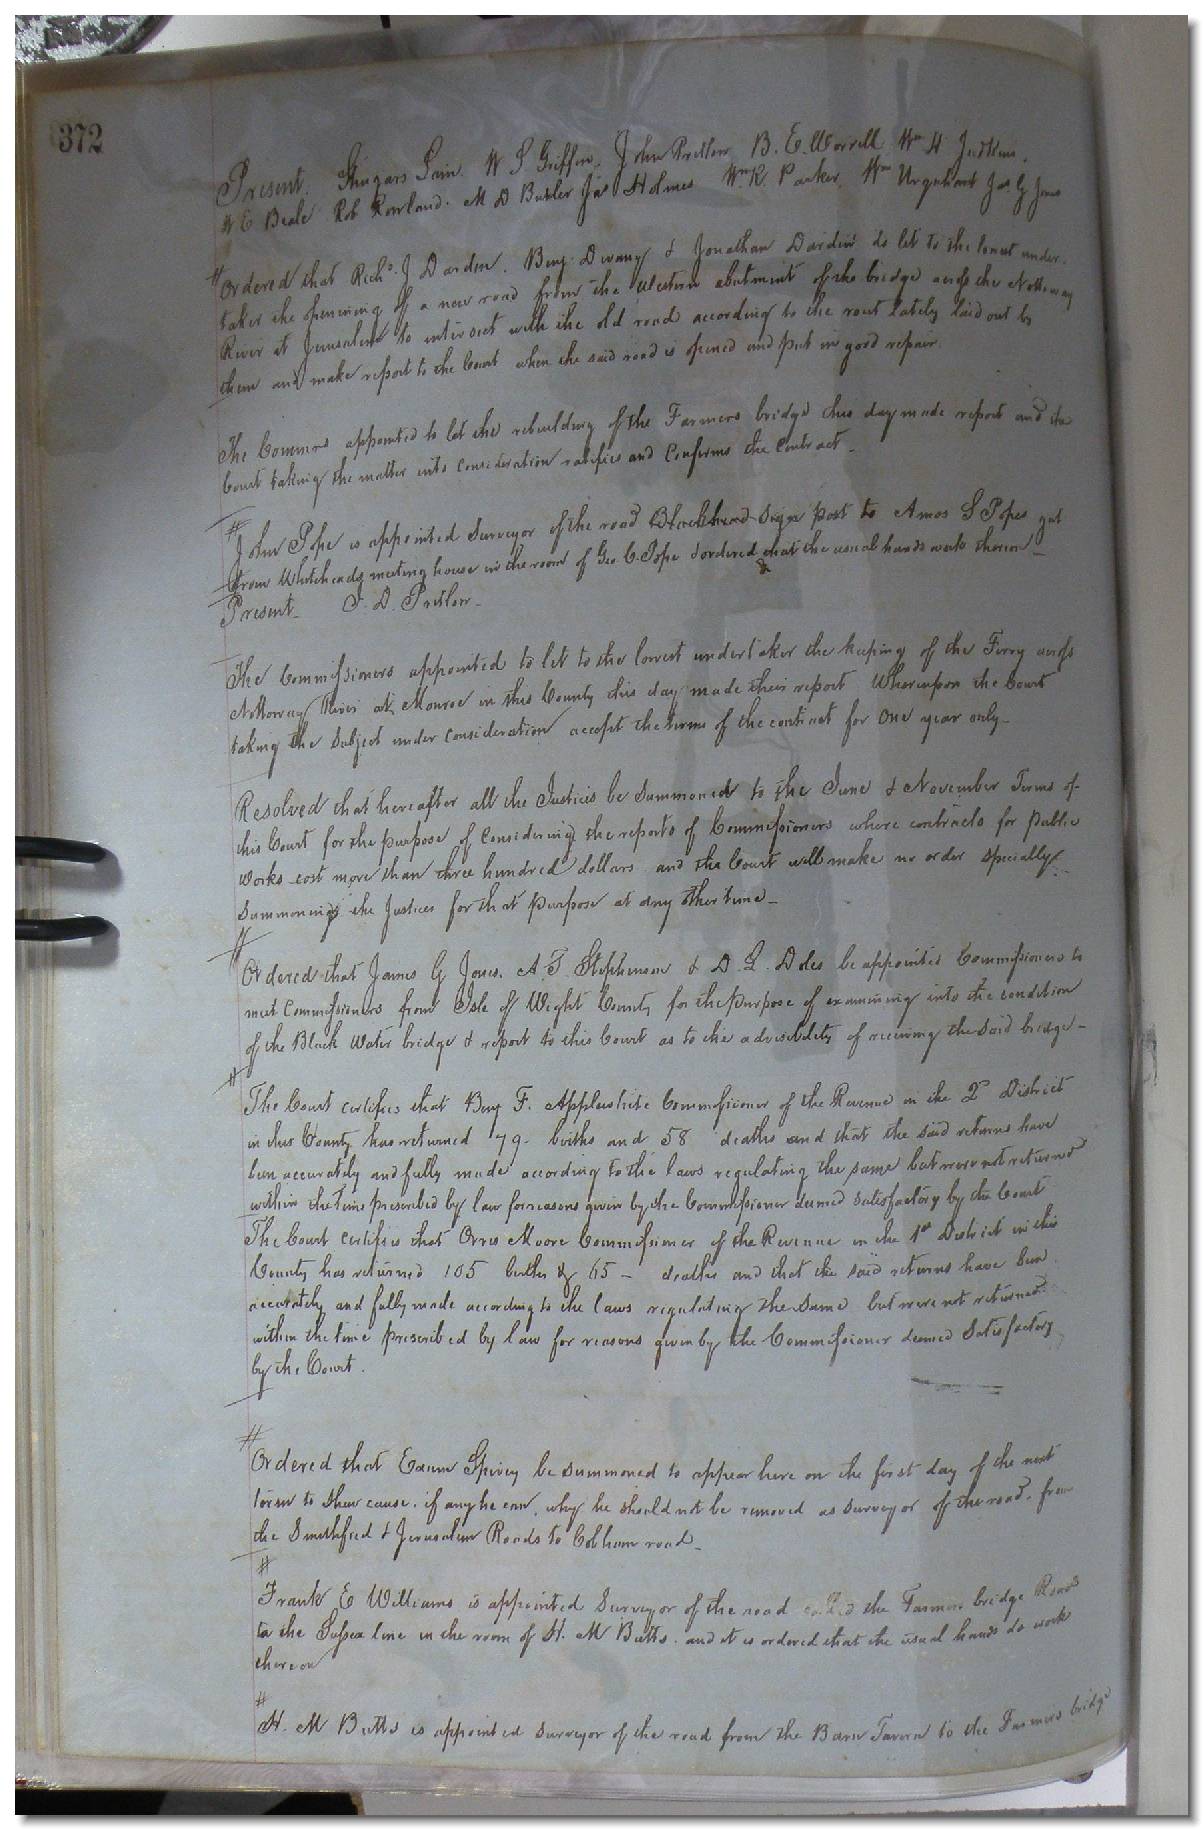 372
Present. Sain. W S Griffin. John Pretlow B. E. Worrell Wm H Judkins.
W E Beale Rob Rowland. M D Butler Jas Holmes Wm K. Parker. Wm Urquhart Jas G Jones
# Ordered that Richd. J Darden. Benj. Dwany & Jonathan Darden do let to the lowest under-
taker the opening of a new road from the Western abutment of the bridge across the Nottoway
River at Jerusalem to intersect with the old road according to the rout lately laid out by
them and make report to the Court when the said road is opened and put in good repair.
The Commrs appointed to let the rebuilding of the Farmers bridge this day made report and the
Court taking the matter into consideration ratifies and Confirms the Contract.
#
John Pope is appointed Surveyor of the road Blackhead Sign post to Amos S Popes gat
from Whiteheads meeting house in the room of Geo. C. Pope & ordered that the usual hands work thereon
Present. J. D. Pretlow.
The Commissioners appointed to let to the lowest undertaker the keeping of the Ferry across
Nottoway River at Monroe in this County this day made their report Whereupon the Court
taking the Subject under consideration accept the terms of the contract for One year only.
Resolved that hereafter all the Justices be Summoned to the June & November Terms of
this Court for the purpose of Considering the reports of Commissioners where contracts for Public
works cost more than three hundred dollars and the Court will make no order specially
Summoning the Justices for that purpose at any other time
#
Ordered that James G Jones, A. T. Stephenson & D. L. Doles be appointed Commissioners to
meet Commissioners from Isle of Wight County for the purpose of examining into the condition
of the Black Water bridge & report to this Court as to the advisibility of receiving the Said bridge
#
The Court certifies that Benj F. Applewhite Commissioner of the Revenue in the 2d District
in this County has returned 79 births and 58 deaths and that the said returns have
been accurately and fully made according to the laws regulating the same but were not returned
within the time prescribed by law for reasons given by the Commissioner deemed Satisfactory by the Court
The Court certifies that Orris Moore Commissioner of the Revenue in the 1st District in this
County has returned 105 births & 65 - deaths and that the said returns have been
accurately and fully made according to the laws regulating the same but were not returned
within the time prescribed by law for reasons given by the Commissioner deemed Satisfactory
by the Court.
#
Ordered that Exum Spivey be summoned to appear here on the first day of the next
term to shew cause, if any he can, why he should not be removed as Surveyor of the road, from
the Smithfield & Jerusalem Roads to Cobham road.
#
Frank E Williams is appointed Surveyor of the road called the Farmers bridge Road
to the Sussex line in the room of H. M Butts. and it is ordered that the usual hands do work
thereon
#
H. M Butts is appointed Surveyor of the road from the Barn Tavern to the Farmers bridge